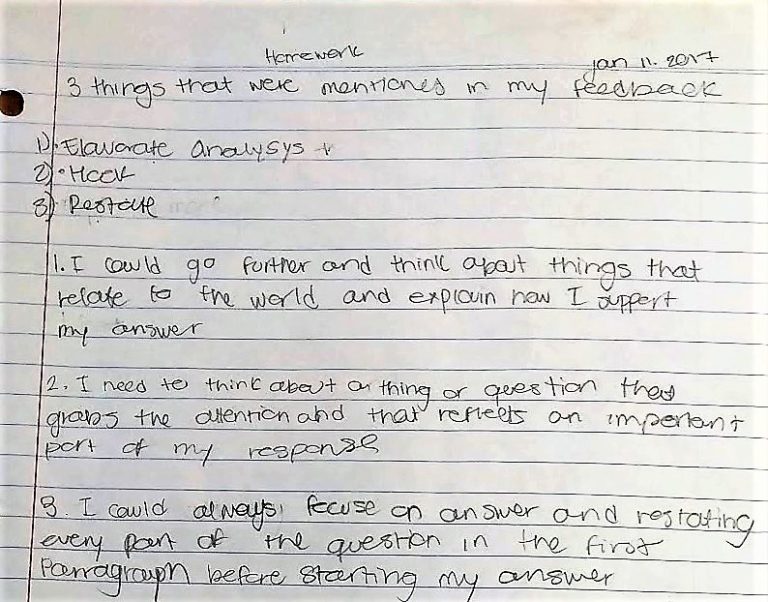 Homework
Jan 11. 2017
3 things that were mentioned in my feedback
1) • Elavorate analysys +
2) • Hook
3) • Restate
1. I could go further and think about things that
relate to the world and explain how I support
my answer
2. I need to think about a thing or question that
grabs the attention and that reflects an important
part of my response
3. I could always focuse on answer and restating
every part of the question in the first
Parragraph before starting my answer